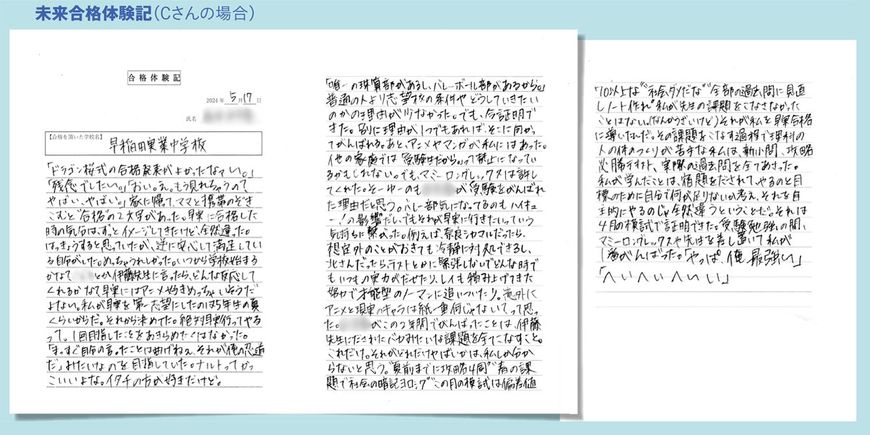 未来合格体験記（Cさんの場合）
合格体験記
2024年 5月17日
氏名
【合格を頂いた学校名】
早稲田実業中学校
「ドラゴン桜式の合格発表がよかったなァい。」
「残念でした
家に帰って、ママと携帯のぞき
こむと、合格の2文字があった。早実に合格した
時の気持ちは、ずっとイメージしてきたけど、全然違った。
はっきょうすると思っていたが、逆に安心して満足している
自分がいた。めっちゃうれしかった。いつから学校始まる
かなァ
とか伊藤先生に言ったら、どんな反応して
くれるかなァ 早実にはアニメ好きめっちゃいそうだ
よなぁい。私が早実を第一志望にしたのは5年生の夏
くらいからだ。それから決めてた。絶対早実行ってやる
って。1回目指したことをあきらめたくはなかった。
「まっすぐ自分の言ったことは曲げねぇ、それが俺の忍道
だ」みたいなのを目指していた。ナルトってかっ
こいいよな。イタチの方が好きだけど。
「唯一の珠算部があるし、バレーボール部があるから。」
普通の人より志望校の条件やどうしていきたい
のかの理由が少なかった。でも、今証明で
きた。別に理由が1つでもあれば、そこに向かっ
てがんばれる。あと、アニメやマンガが私にはあった。
他の家庭では「受験生だから」って禁止になってい
るかもしれない。でも、マミーロングレックスは許し
てくれた。そーゆーのも
が受験をがんばれ
た理由だと思う。バレー部気になってるのもハイキュ
ー!!の影響だし。でもそれが早実に行きたいっていう
気持ちに繋がった。例えば、奈良シカマルだったら、
想定外のことがおきても冷静に対処できるし、
北さんだったら、テストとかに緊張しないでどんな時で
もいつもの実力がだせたり、レイも積み上げてきた
努力で才能型のノーマンに追いついたり。意外に
アニメと現実のキャラは紙一重何じゃないてって思っ
た。
がこの2年間でがんばったことは、伊藤
先生にだされたバカみたいな課題を全てこなすこと。
これだけ。それがどれだけやばいかは、私しか分か
らないと思う。
題で社会の暗記ヨロシク
この月の模試は偏差値
全部の過去問に見直
しノート作れ
私が先生の課題をこなさなかった
ことはない。(なんかうざいけど)それが私を早実合格
に導いた
その課題をこなす過程で理科の
人の体のつくりが苦手な私は、新小問、攻略
必勝テキスト、実際の過去問を全てあさった。
私が学んだことは、宿題をだされて、やるのと目
標のために自分で何が足りないか考え、それを自
主的にやるのじゃ全然違うということだ。それは
4月の模試で証明できた。受験勉強の間、
マミーロングレックスや先生を差し置いて私が
1番がんばった。やっぱ、俺最強ぃ」
「へいへいへいぃ」